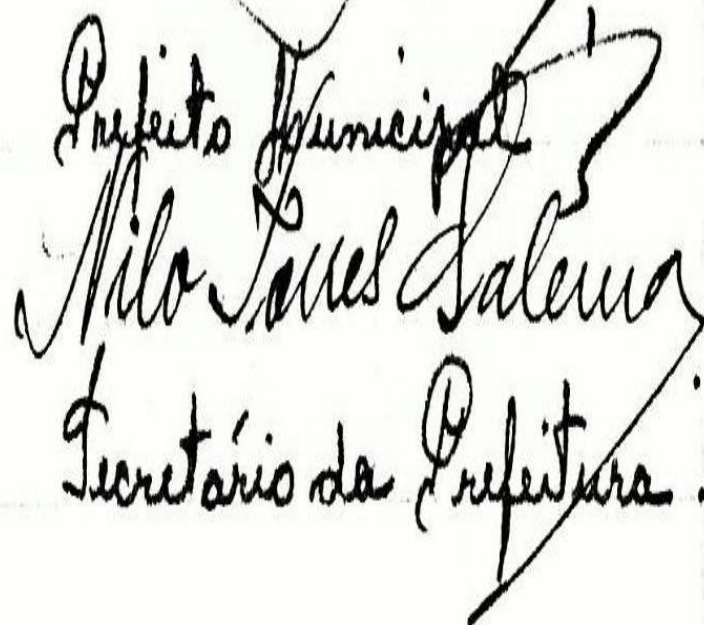 Prefeito Municipal
Nilo Torres Salerno
Secretário da Prefeitura.